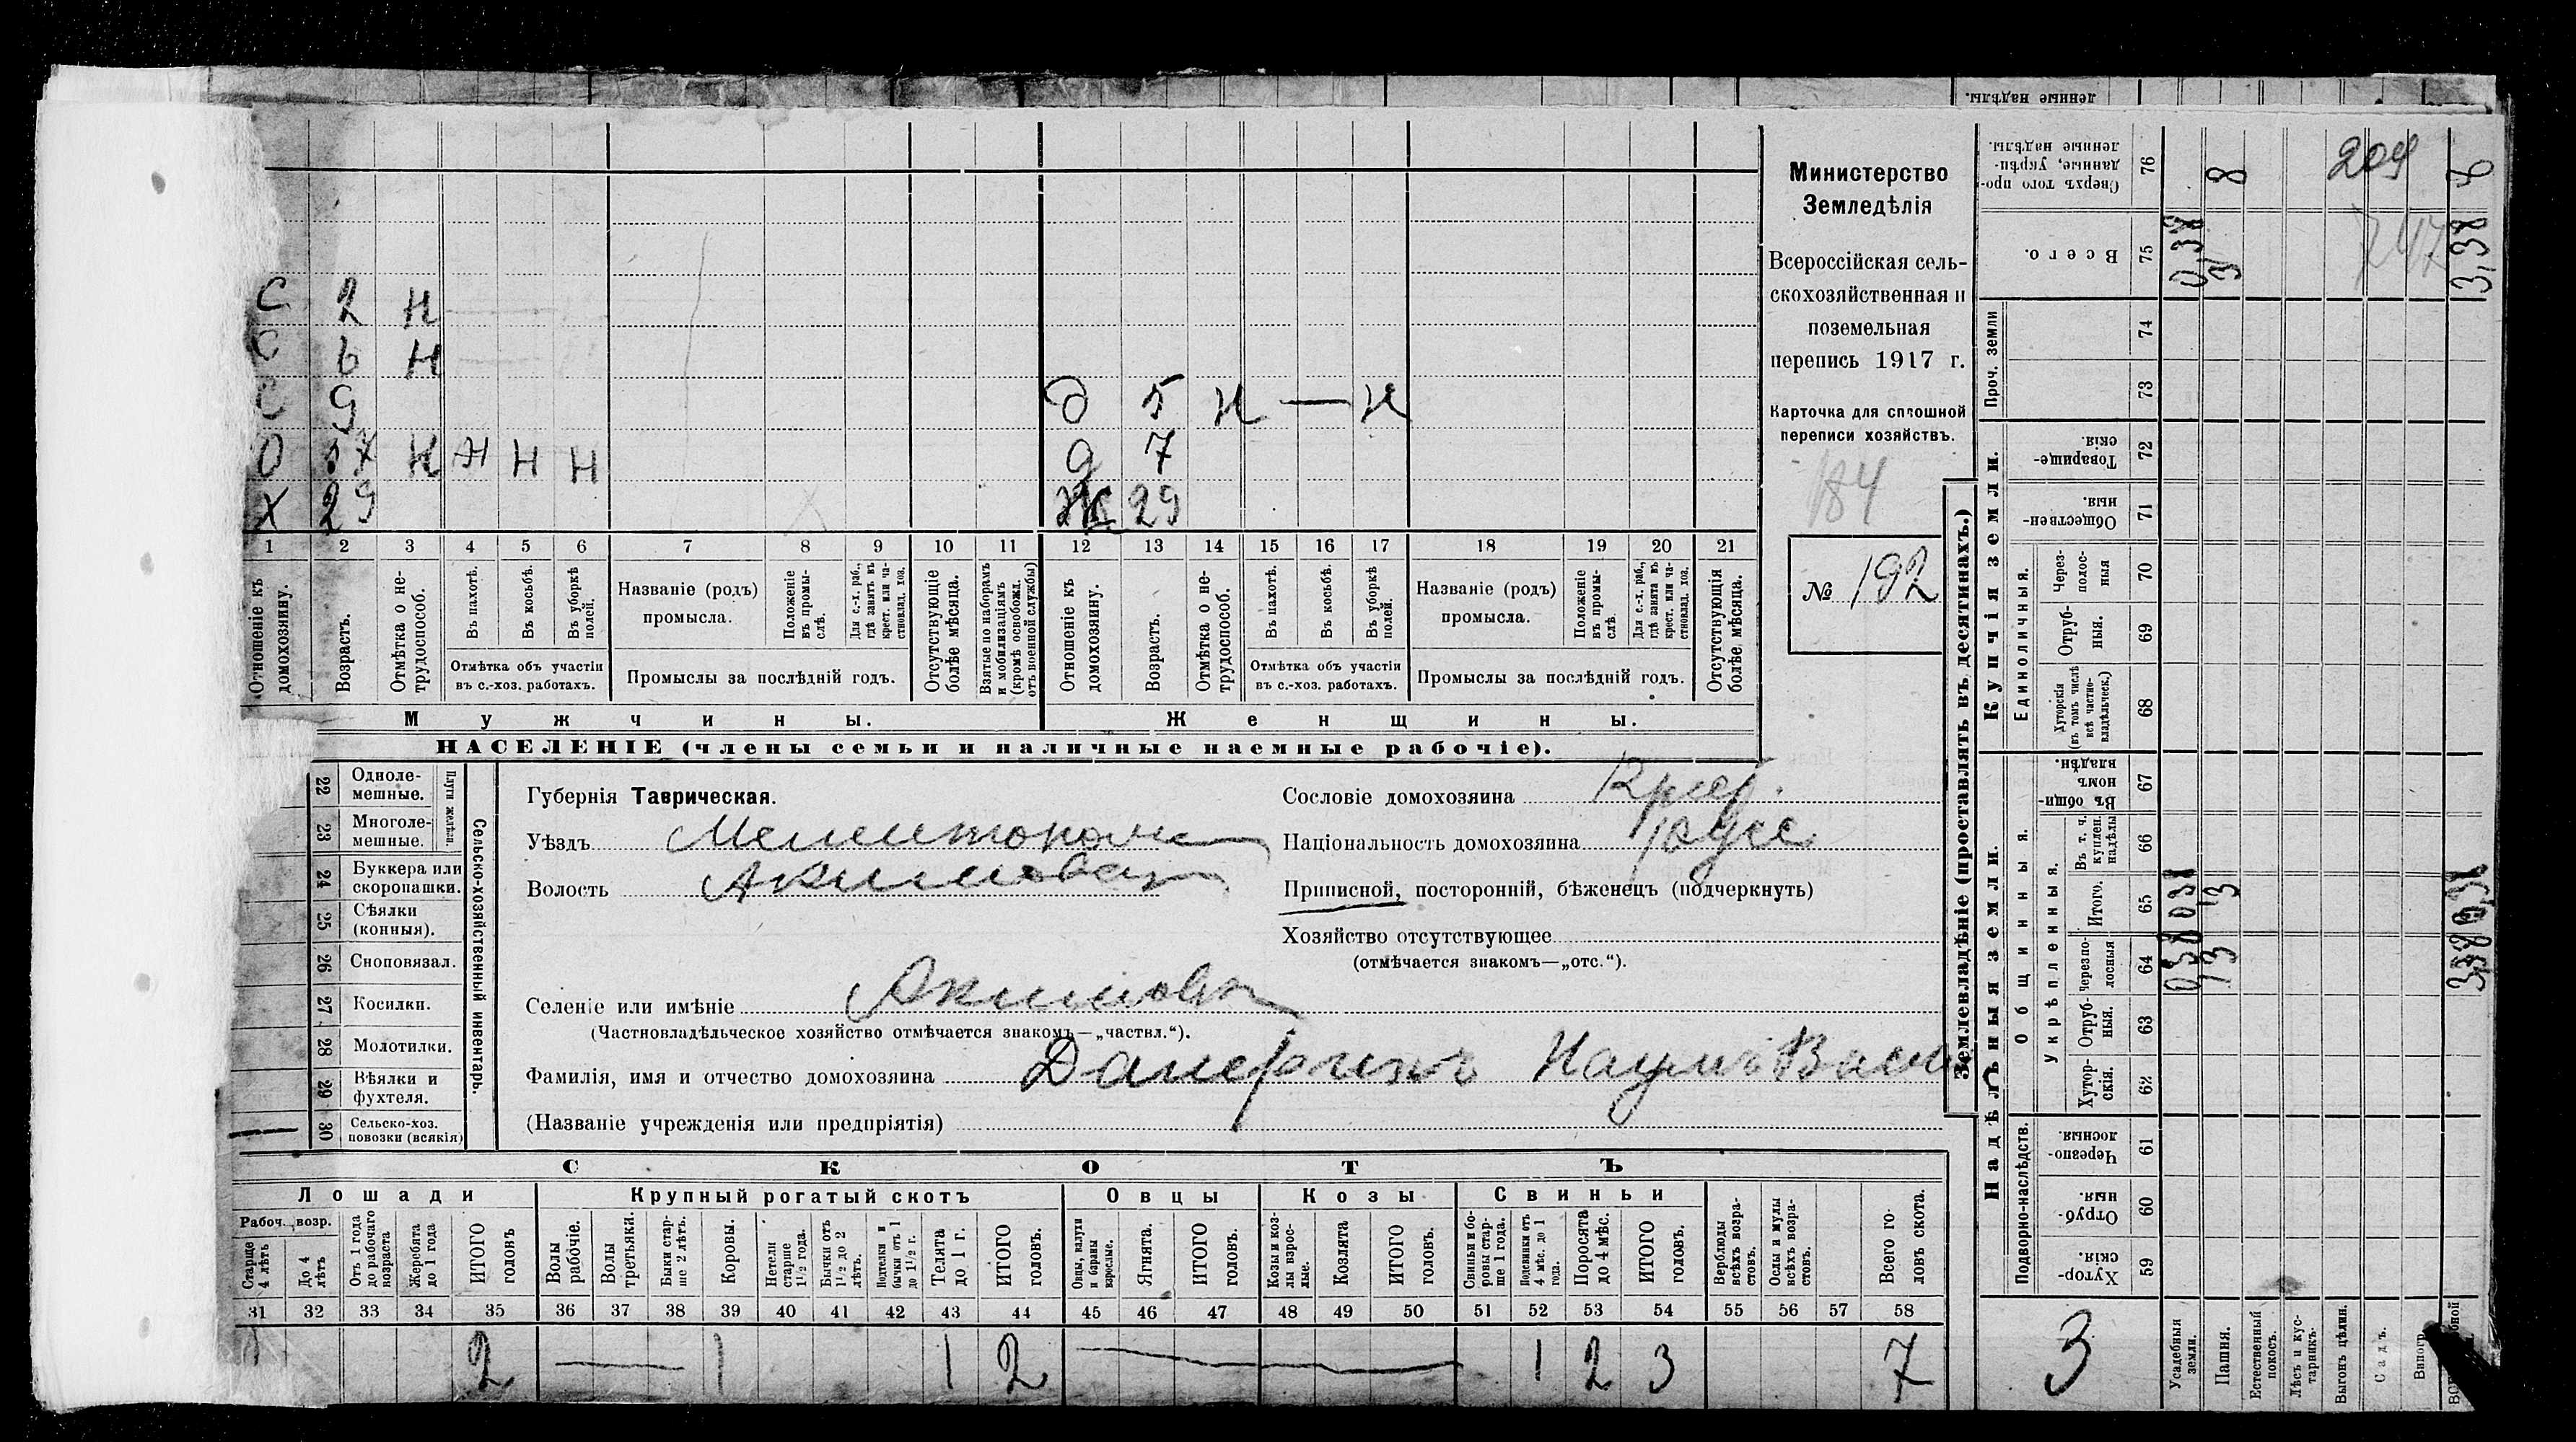 ленные надѣлы.
С 2 Н
С 6 Н
С 9
О 57 Н Н Н Н
Х 29
д 5 Н — Н
д 7
Ж 29
1 2 3 4 5 6 7 8 9 10 11 12 13 14 15 16 17 18 19 20 21
Отношеніе къ домохозяину.
Возрастъ.
Отмѣтка о не-трудоспособ.
Въ пахотѣ.
Въ косьбѣ.
Въ уборкѣ полей.
Отмѣтка объ участіи въ с.-хоз. работахъ.
Названіе (родъ) промысла.
Положеніе въ промы-слѣ.
Для с.-х. раб., гдѣ занятъ въ крест. или ча-стновлад. хоз.
Промыслы за послѣдній годъ.
Отсутствующіе болѣе мѣсяца.
Взятые по наборамъ и мобилизаціямъ (кромѣ освобожд. отъ военной службы)
Отношеніе къ домохозяину.
Возрастъ.
Отмѣтка о не-трудоспособ.
Въ пахотѣ.
Въ косьбѣ.
Въ уборкѣ полей.
Отмѣтка объ участіи въ с.-хоз. работахъ.
Названіе (родъ) промысла.
Положеніе въ промы-слѣ.
Для с.-х. раб., гдѣ занята въ крест. или ча-стновлад. хоз.
Промыслы за послѣдній годъ.
Отсутствующія болѣе мѣсяца.
Мужчины.
Женщины.
НАСЕЛЕНІЕ (члены семьи и наличные наемные рабочіе).
Министерство
Земледѣлія
Всероссійская сель-
скохозяйственная и
поземельная
перепись 1917 г.
Карточка для сплошной
переписи хозяйствъ.
184
№ 192
22 Одноле-мешные.
23 Многоле-мешные.
Плуги желѣзн.
24 Буккера или скоропашки.
25 Сѣялки (конныя).
26 Сноповязал.
27 Косилки.
28 Молотилки.
29 Вѣялки и фухтеля.
30 Сельско-хоз. повозки (всякія)
Сельско-хозяйственный инвентарь.
Губернія Таврическая.
Уѣздъ Мелитополь
Волость Акимовск
Селеніе или имѣніе Акимовка
(Частновладѣльческое хозяйство отмѣчается знакомъ—„частвл.“).
Фамилія, имя и отчество домохозяина Наумъ Васил
(Названіе учрежденія или предпріятія)
Сословіе домохозяина
Національность домохозяина русс
Приписной, посторонній, бѣженецъ (подчеркнуть)
Хозяйство отсутствующее
(отмѣчается знакомъ—„отс.“).
СКОТЪ
Лошади
Крупный рогатый скотъ
Овцы
Козы
Свиньи
Рабоч. возр.
Старше 4 лѣтъ
До 4 лѣтъ
Отъ 1 года до рабочаго возраста
Жеребята до 1 года
ИТОГО головъ
Волы рабочіе.
Волы третьяки.
Быки стар-ше 2 лѣтъ.
Коровы.
Нетели старше 1½ года.
Бычки отъ 1½ до 2 лѣтъ.
Подтелки и бычки отъ 1 до 1½ г.
Телята до 1 г.
ИТОГО головъ.
Овцы, валухи и бараны взрослые.
Ягнята.
ИТОГО головъ.
Козы и коз-лы взрос-лые.
Козлята
ИТОГО головъ.
Свиньи и бо-ровы стар-ше 1 года.
Подсвинки отъ 4 мѣс. до 1 года.
Поросята до 4 мѣс.
ИТОГО головъ.
Верблюды всѣхъ возра-стовъ.
Ослы и мулы всѣхъ возра-стовъ.
Всего го-ловъ скота.
31 32 33 34 35 36 37 38 39 40 41 42 43 44 45 46 47 48 49 50 51 52 53 54 55 56 57 58
2 — 1 1 2 — 1 2 3 7
Землевладѣніе (проставлять въ десятинахъ.)
Надѣльныя земли.
Купчія земли.
Проч. земли
Сверхъ того про-данные, укрѣп-ленные надѣлы.
76
Всего.
75
74
73
Товарище-скія.
72
Обществен-ныя.
71
Единоличныя.
Через-полос-ныя
70
Отруб-ныя.
69
Хуторскія (въ томъ числѣ всѣ частно-владѣльческ.)
68
Общинныя.
Въ общин-номъ владѣн.
67
Укрѣпленныя.
Въ т. ч. куплен. надѣлы
66
Итого.
65
Черезпо-лосныя
64
Отруб-ныя.
63
Хутор-скія.
62
Подворно-наслѣдств.
Черезпо-лосныя
61
Отруб-ныя.
60
Хутор-скія.
59
3
Усадебныя земли.
Пашня.
Естественный покосъ.
Лѣсъ и кус-тарникъ.
Выгонъ цѣлин.
Садъ.
8
204
747
0,38
3
3,38